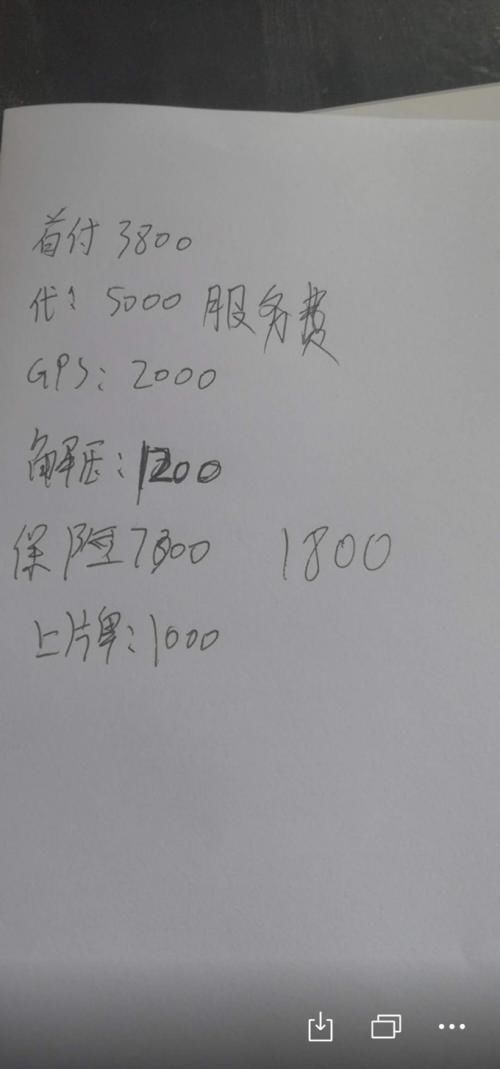 首付 3800
代: 5000 服务费
GPS: 2000
解压: 1200
保险7300 1800
上牌: 1000